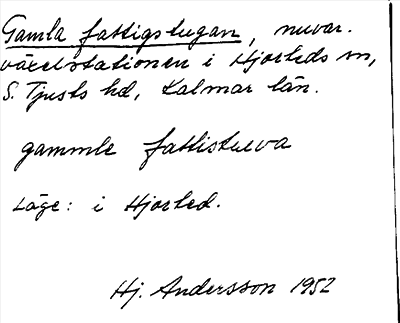 Gamla fattigstugan, nuvar.
växelstationen i Hjorteds sn,
S. Tjusts hd, Kalmar län.
gammle fattistueva
Läge: i Hjorted.
Hj. Andersson 1952